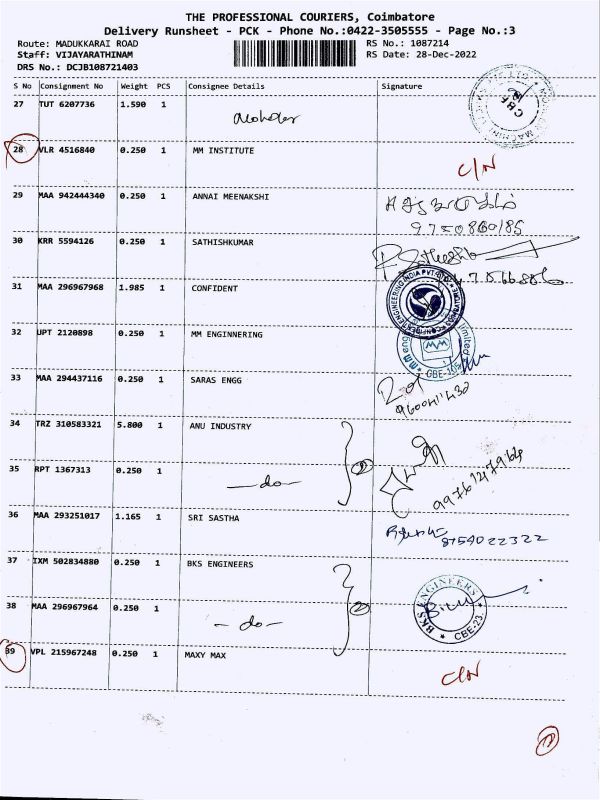 THE PROFESSIONAL COURIERS, Coimbatore
Delivery Runsheet - PCK - Phone No.:0422-3505555 - Page No.:3
Route: MADUKKARAI ROAD RS No.: 1087214
Staff: VIJAYARATHINAM RS Date: 28-Dec-2022
DRS No.: DCJB108721403
S No Consignment No Weight PCS Consignee Details Signature
27 TUT 6207736 1.590 1
28 VLR 4516840 0.250 1 MM INSTITUTE C/N
29 MAA 942444340 0.250 1 ANNAI MEENAKSHI
30 KRR 5594126 0.250 1 SATHISHKUMAR
31 MAA 296967968 1.985 1 CONFIDENT
32 UPT 2120898 0.250 1 MM ENGINNERING
33 MAA 294437116 0.250 1 SARAS ENGG
34 TRZ 310583321 5.800 1 ANU INDUSTRY
35 RPT 1367313 0.250 1 —do— 2
36 MAA 293251017 1.165 1 SRI SASTHA
8754022322
37 IXM 502834880 0.250 1 BKS ENGINEERS
BKS ENGINEERS CBE-23
38 MAA 296967964 0.250 1 —do— 2
39 VPL 215967248 0.250 1 MAXY MAX C/N